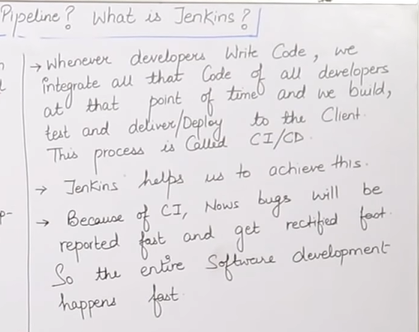 Pipeline? What is Jenkins?
→ Whenever developers Write Code, we
integrate all that Code of all developers
at that point of time and we build,
test and deliver/Deploy to the Client.
This process is Called CI/CD.
→ Jenkins helps us to achieve this.
→ Because of CI, Nows bugs will be
reported fast and get rectified fast.
So the entire Software development
happens fast.